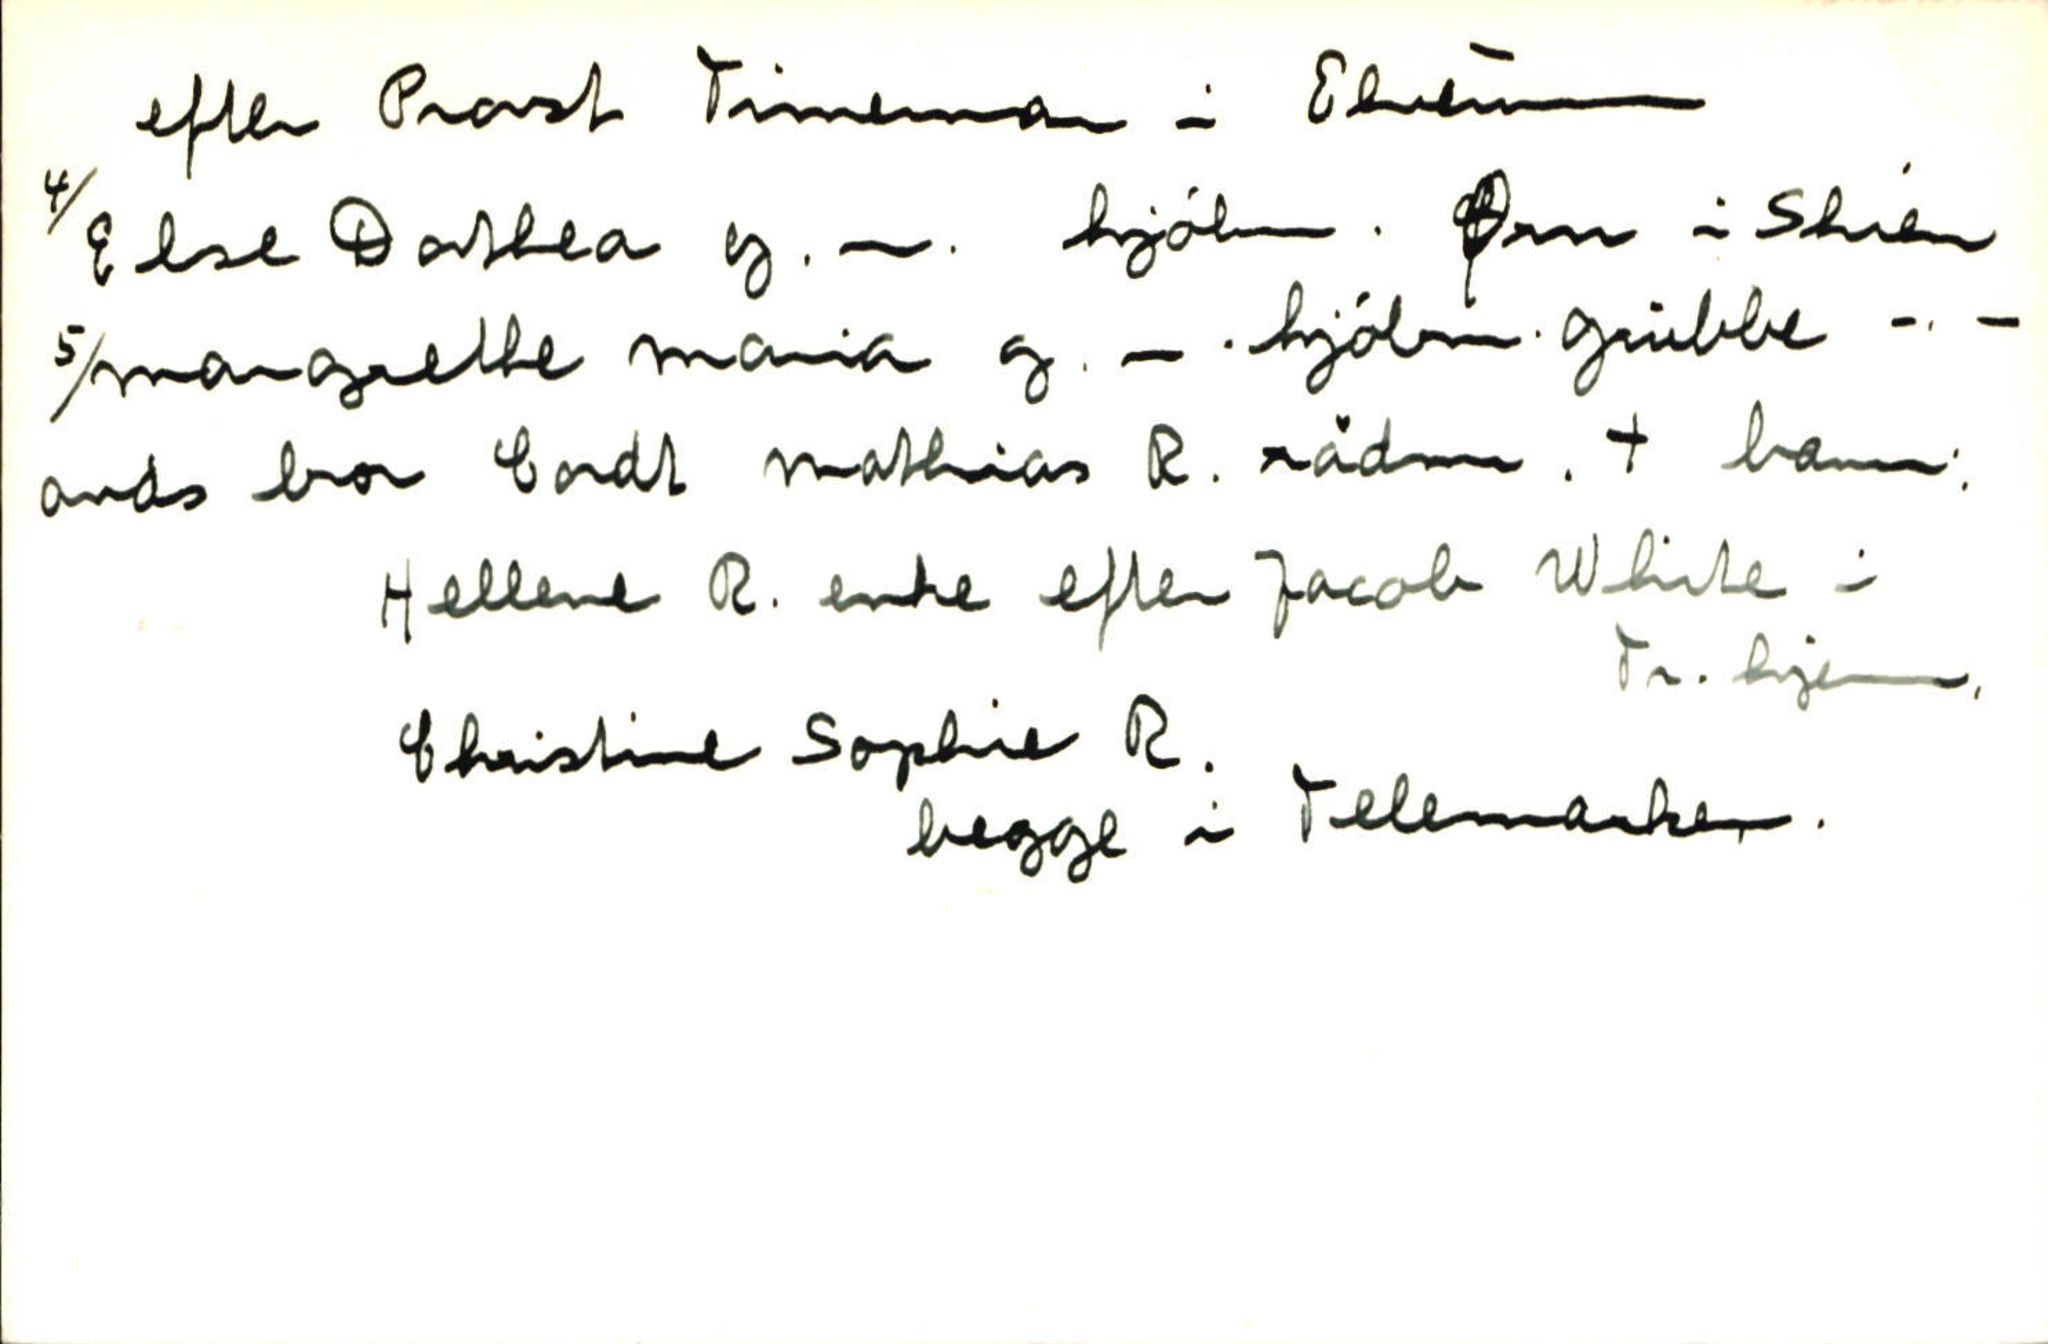 efter Provst Timeman i Elverum
4/ Else Dorthea g. m. kjöbm. Ørn i Skien
5/ Margrethe Maria g. m. kjöbm. Grubbe - . -
avds bror Cordt Mathias R. rådm. + barn:
Hellene R. enke efter Jacob White i
Tr. hjem.
Christine Sophie R.
begge i Telemarken.